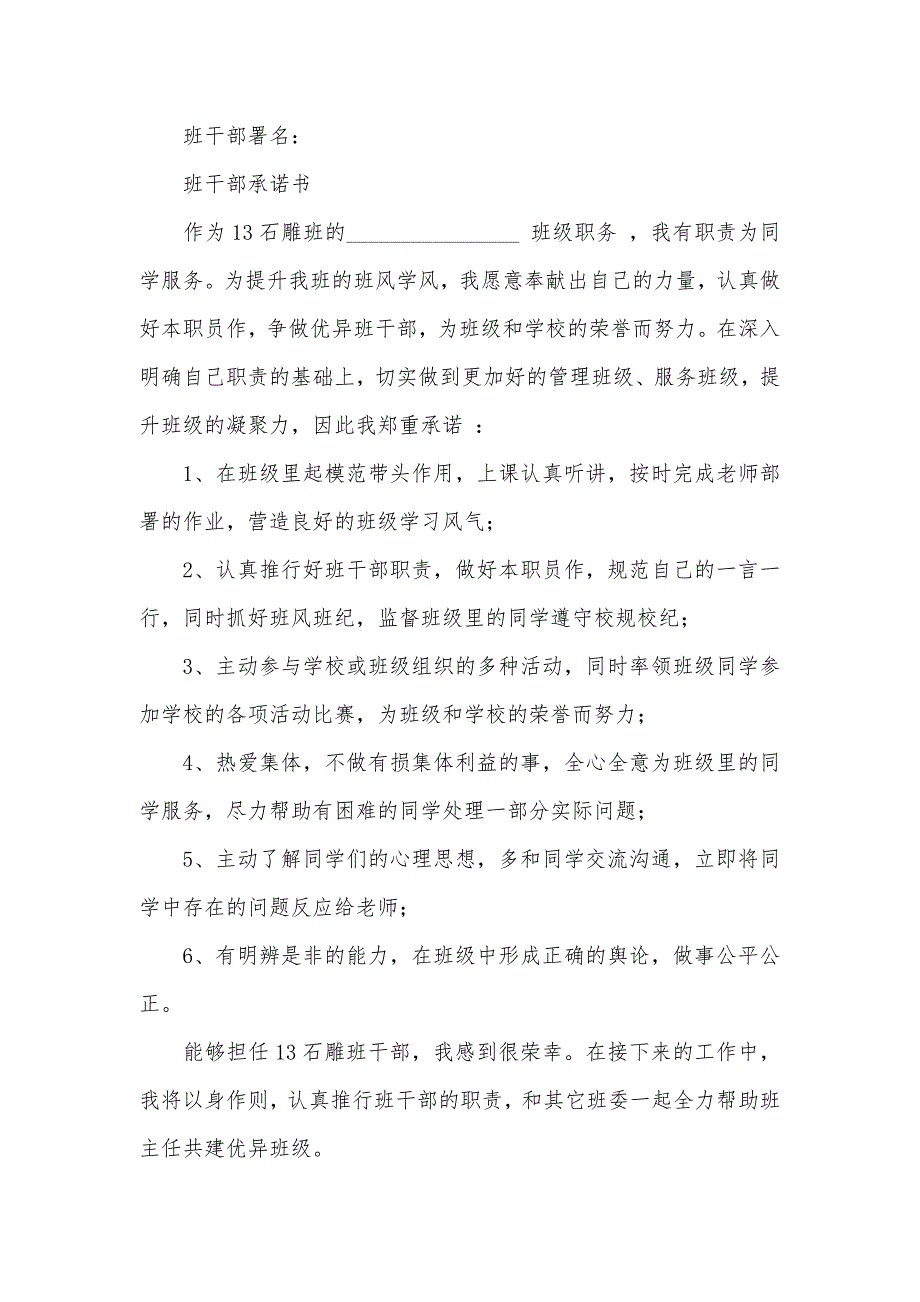 班干部署名：
班干部承诺书
作为 13 石雕班的________________ 班级职务 ，我有职责为同
学服务。为提升我班的班风学风，我愿意奉献出自己的力量，认真做
好本职员作，争做优异班干部，为班级和学校的荣誉而努力。在深入
明确自己职责的基础上，切实做到更加好的管理班级、服务班级，提
升班级的凝聚力，因此我郑重承诺 ：
1、在班级里起模范带头作用，上课认真听讲，按时完成老师部
署的作业，营造良好的班级学习风气；
2、认真推行好班干部职责，做好本职员作，规范自己的一言一
行，同时抓好班风班纪，监督班级里的同学遵守校规校纪；
3、主动参与学校或班级组织的多种活动，同时率领班级同学参
加学校的各项活动比赛，为班级和学校的荣誉而努力；
4、热爱集体，不做有损集体利益的事，全心全意为班级里的同
学服务，尽力帮助有困难的同学处理一部分实际问题；
5、主动了解同学们的心理思想，多和同学交流沟通，立即将同
学中存在的问题反应给老师；
6、有明辨是非的能力，在班级中形成正确的舆论，做事公平公
正。
能够担任 13 石雕班干部，我感到很荣幸。在接下来的工作中，
我将以身作则，认真推行班干部的职责，和其它班委一起全力帮助班
主任共建优异班级。